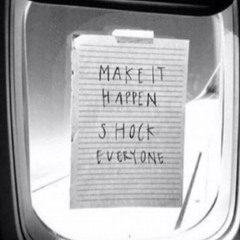 MAKE IT
HAPPEN
SHOCK
EVERYONE